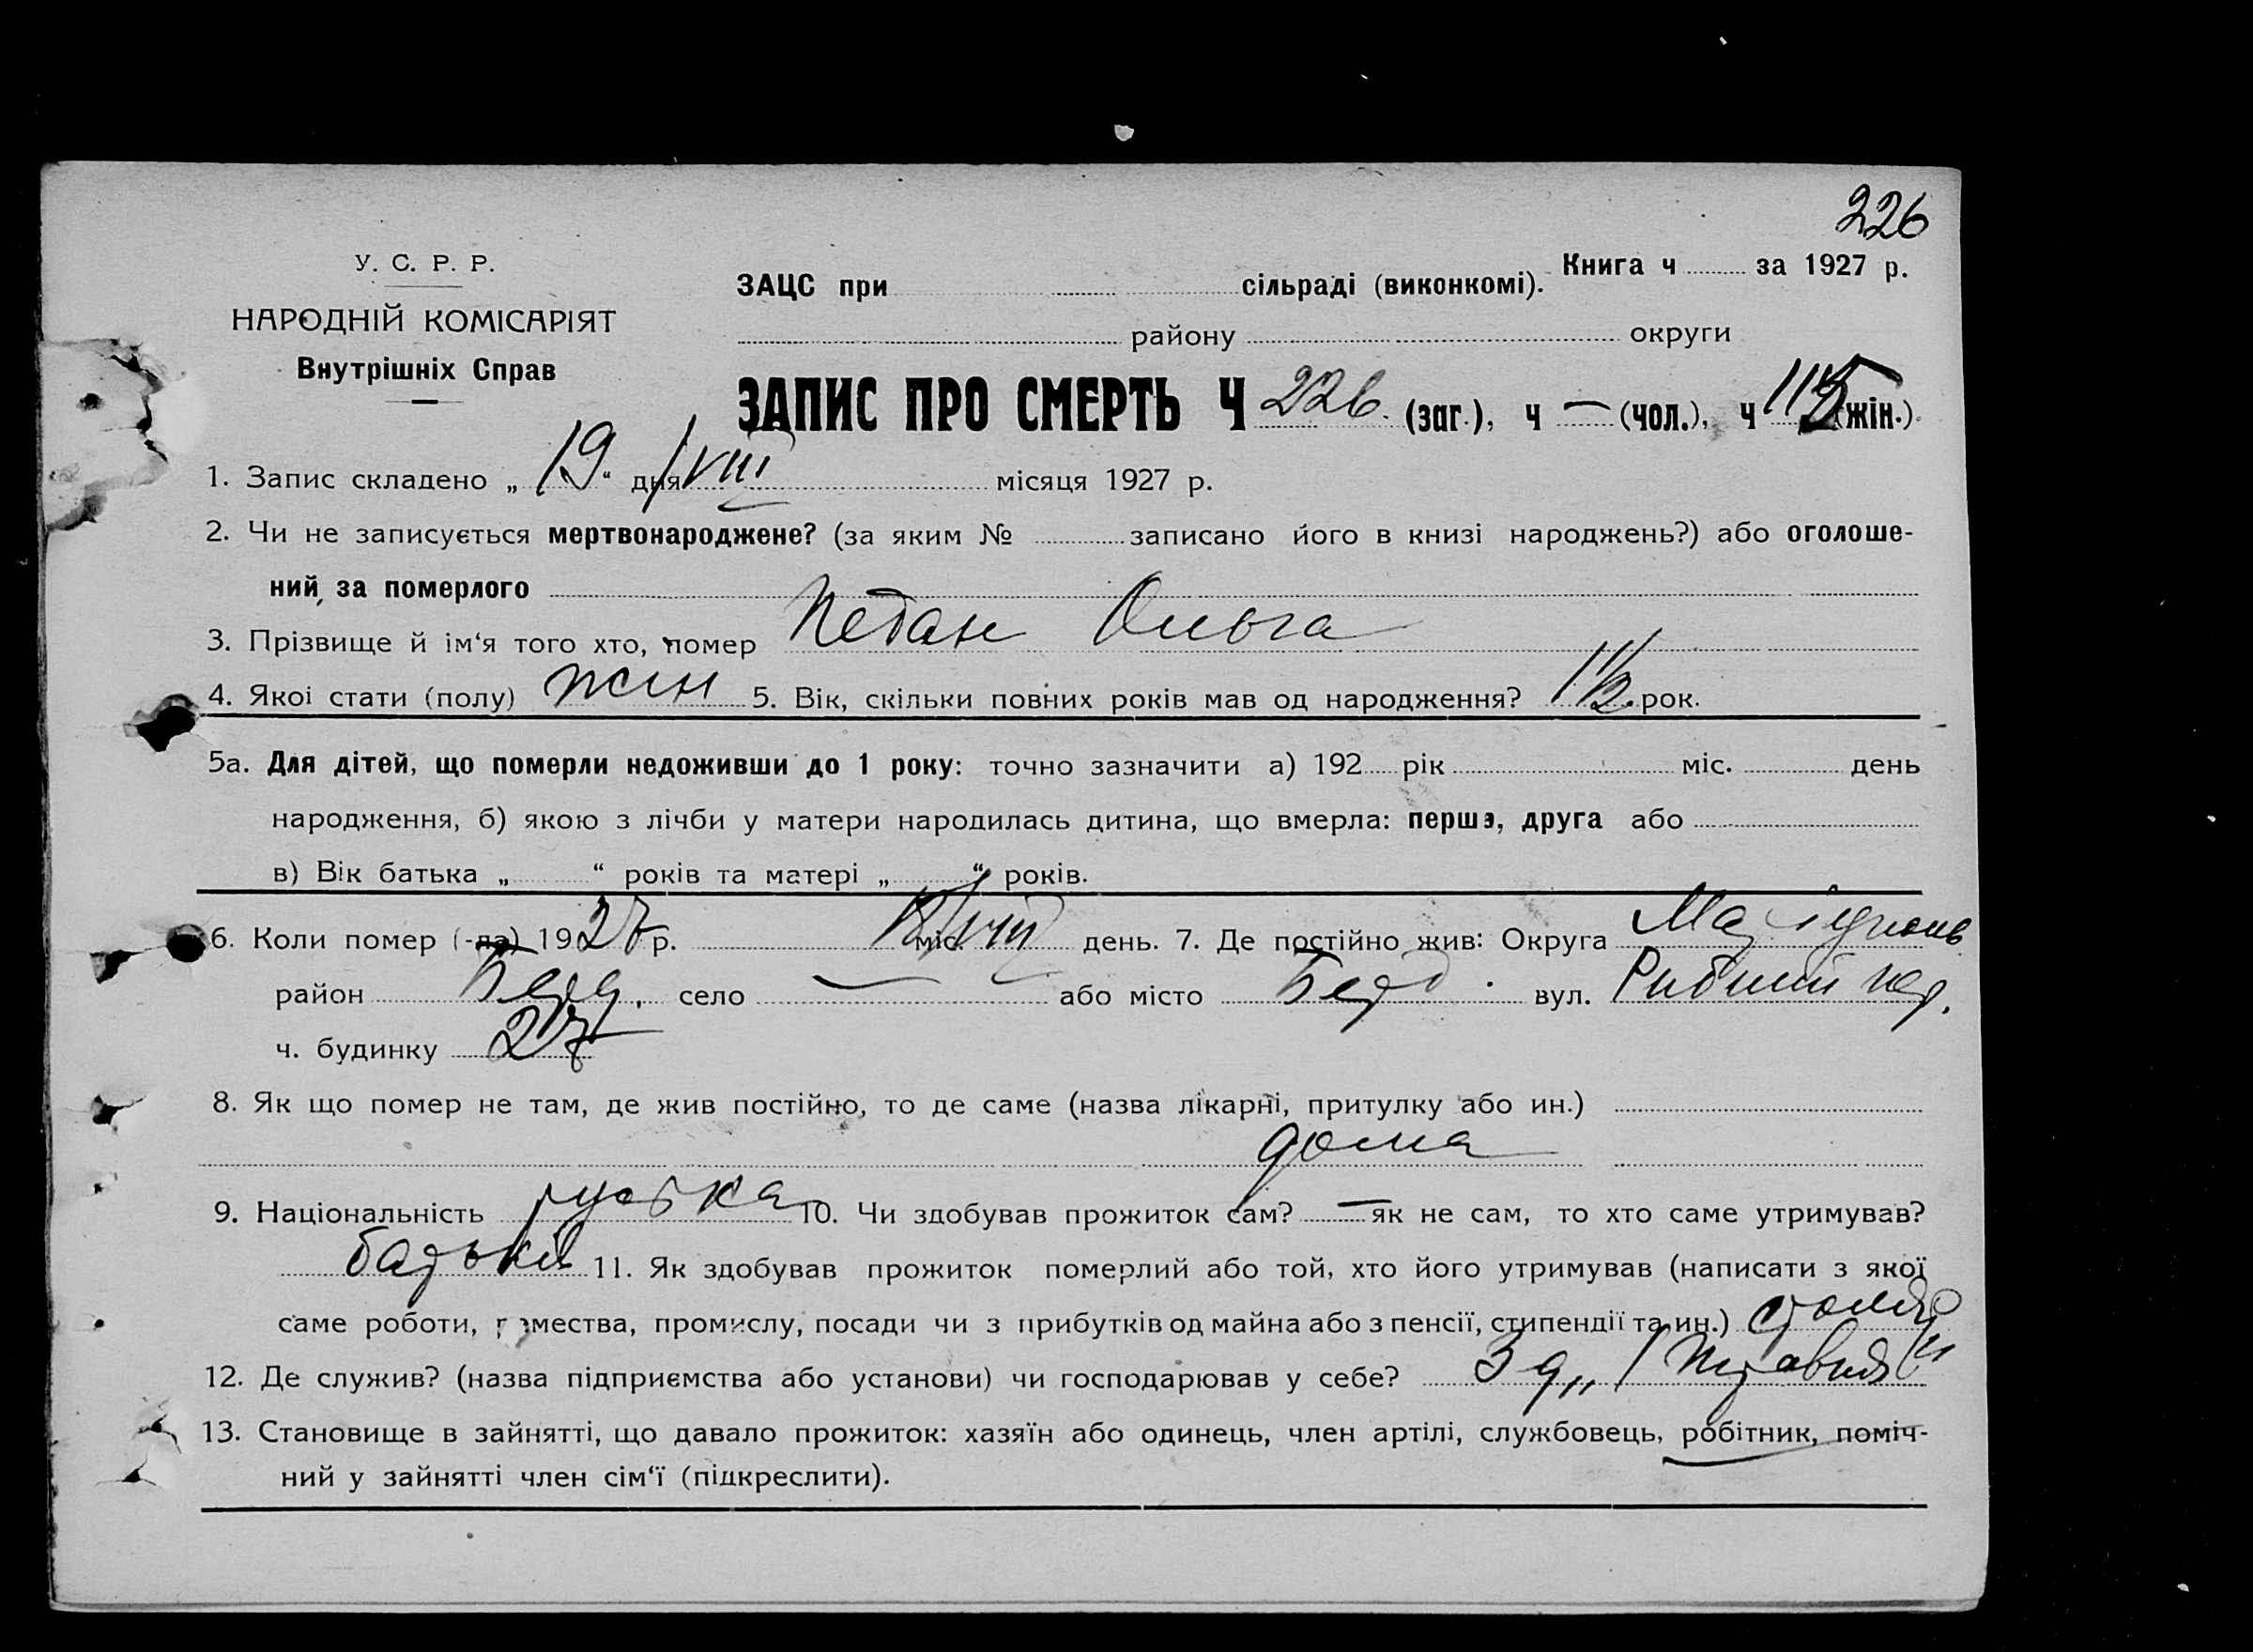 226
У. С. Р. Р.
НАРОДНІЙ КОМІСАРІЯТ
Внутрішніх Справ
Книга ч за 1927 р.
ЗАЦС при сільраді (виконкомі).
району округи
ЗАПИС ПРО СМЕРТЬ Ч 226. (заг.), ч — (чол.), ч 115 (жін.)
1. Запис складено „ 19 “ дня VIII місяця 1927 р.
2. Чи не записується мертвонароджене? (за яким № записано його в книзі народжень?) або оголоше-
ний за померлого
3. Прізвище й ім‘я того хто, помер Педан Ольга
4. Якоі стати (полу) жін 5. Вік, скільки повних років мав од народження? 1 1/2 рок.
5а. Для дітей, що померли недоживши до 1 року: точно зазначити а) 192 рік міс. день
народження, б) якою з лічби у матери народилась дитина, що вмерла: перша, друга або
в) Вік батька „ “ років та матері „ “ років.
6. Коли помер (-ла) 1927 р. міс. VIII день. 7. Де постійно жив: Округа
район Берд. село — або місто Берд. вул. Рибний пер.
ч. будинку 27
8. Як що помер не там, де жив постійно, то де саме (назва лікарні, притулку або ин.)
дома
9. Національність руська 10. Чи здобував прожиток сам? — як не сам, то хто саме утримував?
батьки 11. Як здобував прожиток померлий або той, хто його утримував (написати з якої
саме роботи, ремества, промислу, посади чи з прибутків од майна або з пенсії, стипендії та ин.) столяр
12. Де служив? (назва підприємства або установи) чи господарював у себе?
13. Становище в зайнятті, що давало прожиток: хазяїн або одинець, член артілі, службовець, робітник, поміч-
ний у зайнятті член сім‘ї (підкреслити).